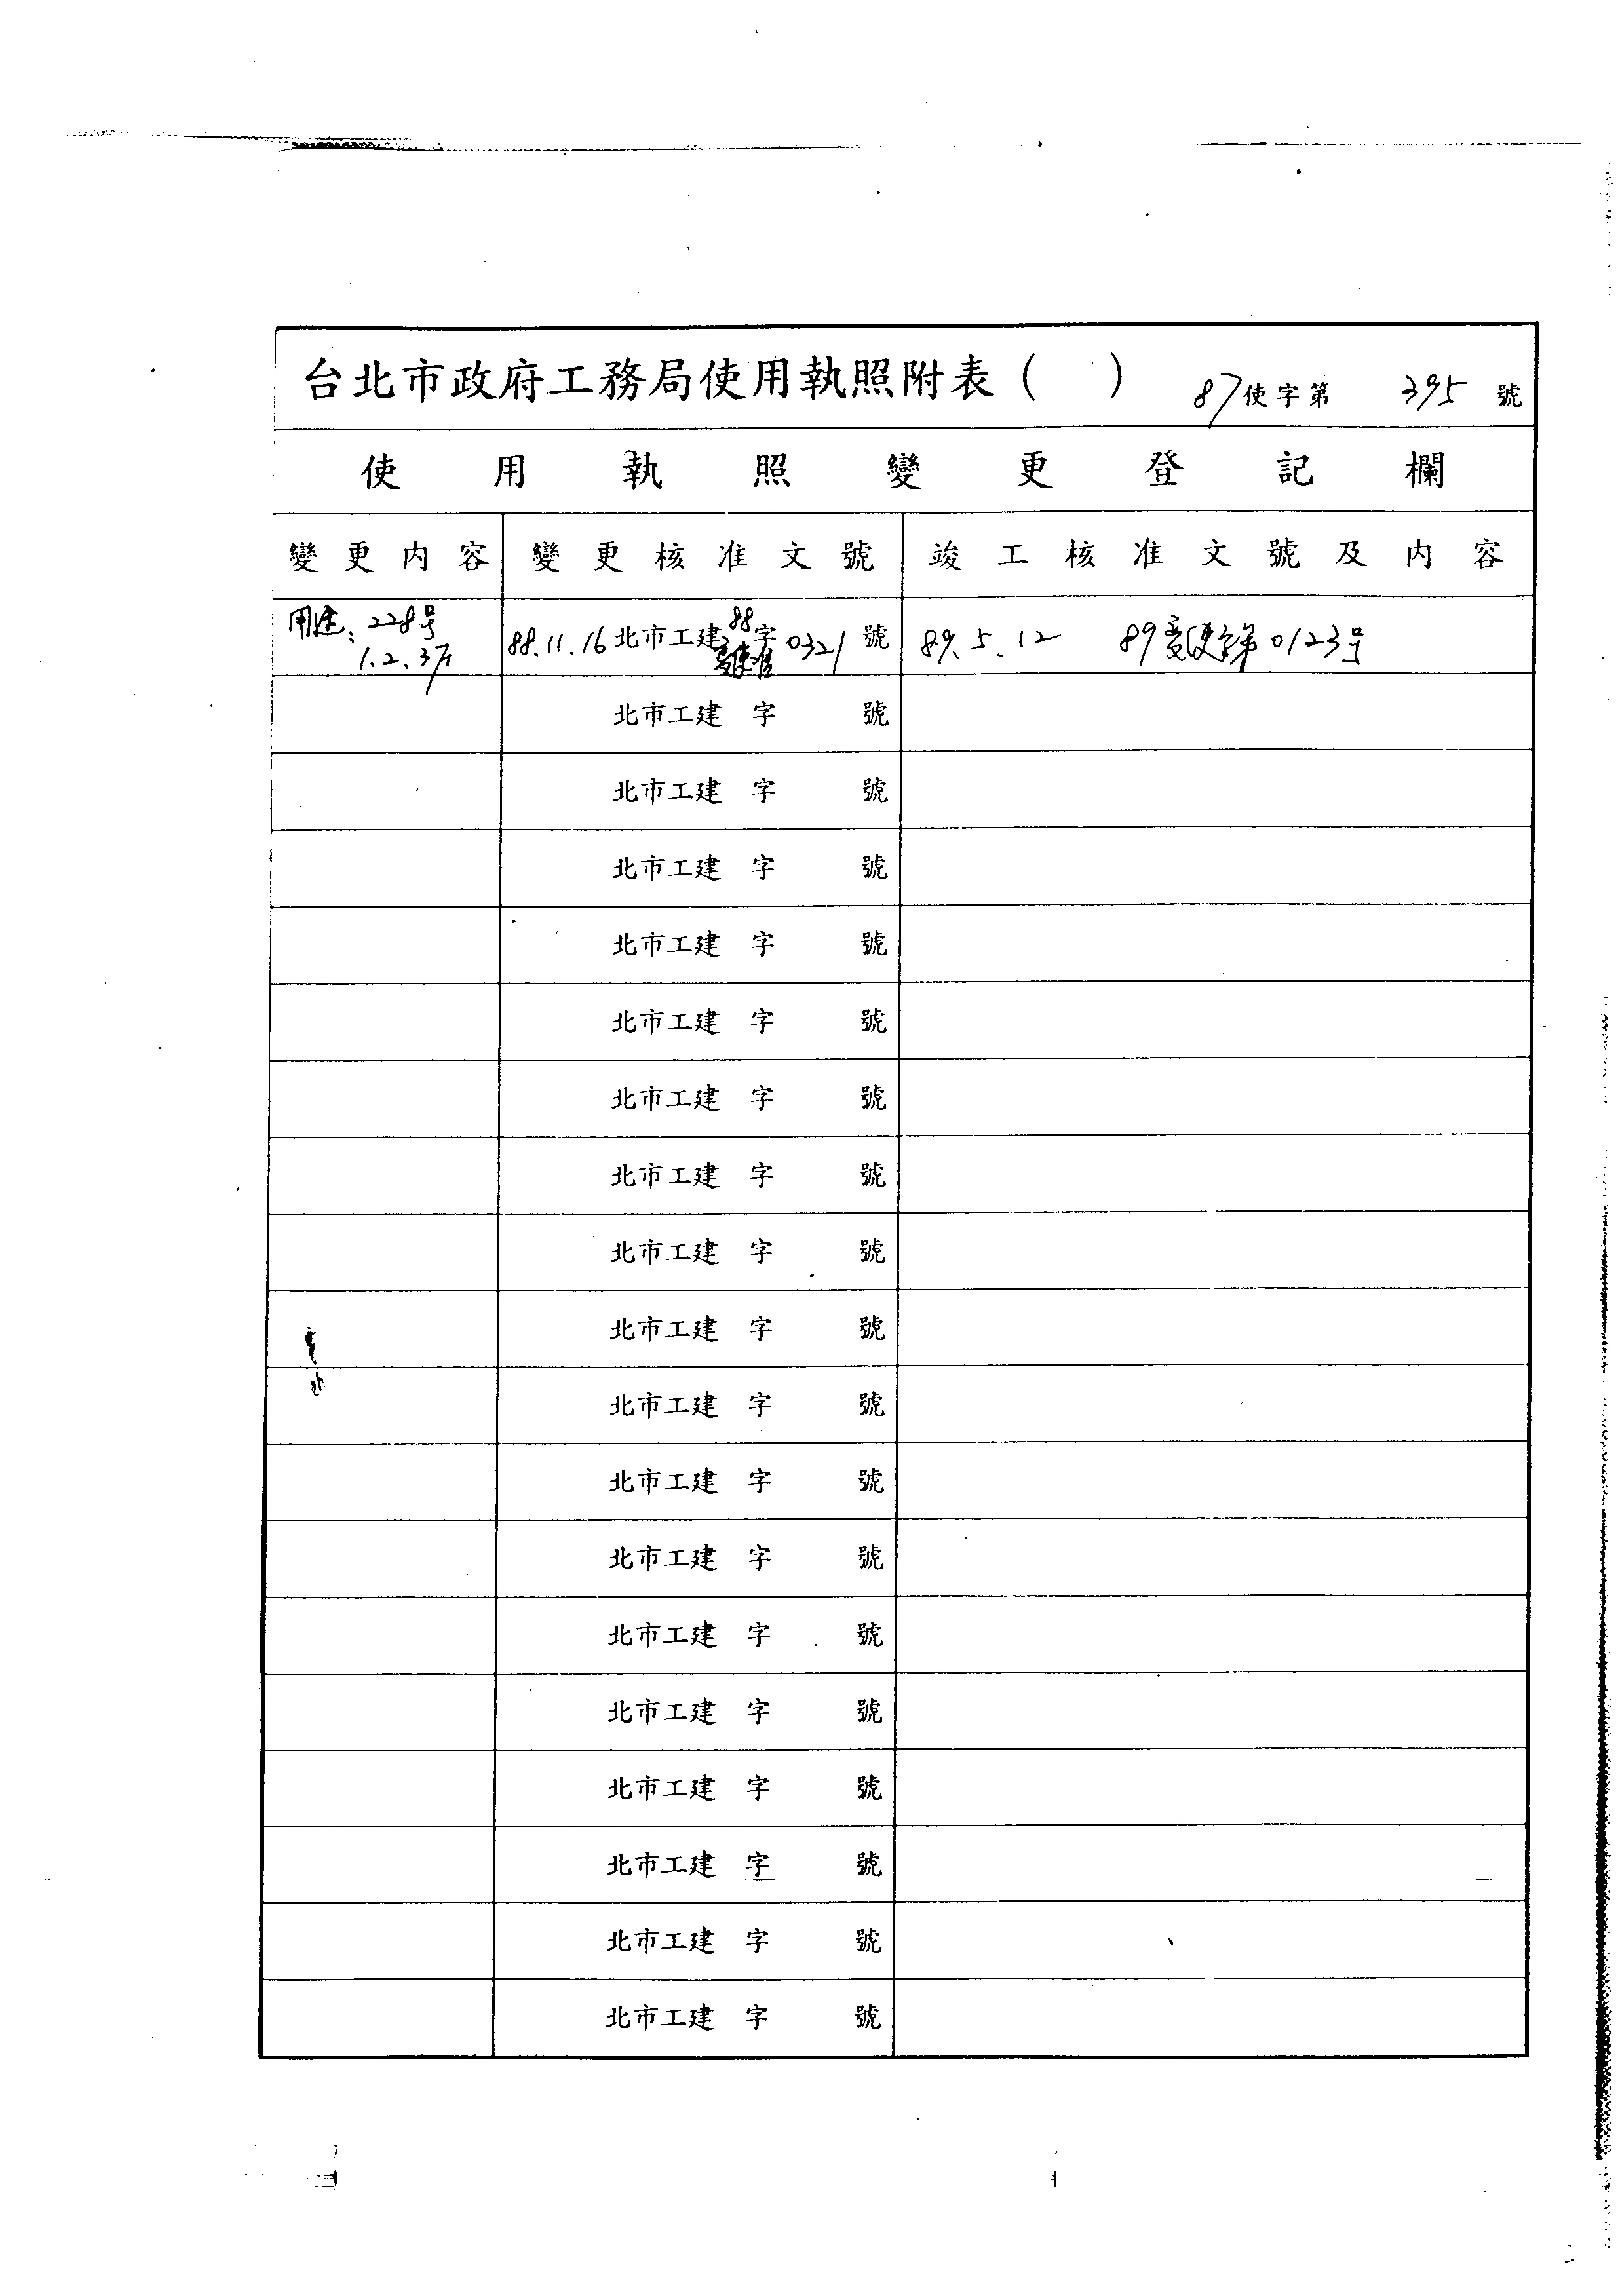 台北市政府工務局使用執照附表（　） 87使字第 395 號
使用執照變更登記欄
變更內容 變更核准文號 竣工核准文號及內容
用途：228号 1.2.3F 88.11.16 北市工建 88 字 變使准 0321 號 89.5.12 89變使字第0123号
北市工建 字 號
北市工建 字 號
北市工建 字 號
北市工建 字 號
北市工建 字 號
北市工建 字 號
北市工建 字 號
北市工建 字 號
北市工建 字 號
北市工建 字 號
北市工建 字 號
北市工建 字 號
北市工建 字 號
北市工建 字 號
北市工建 字 號
北市工建 字 號
北市工建 字 號
北市工建 字 號